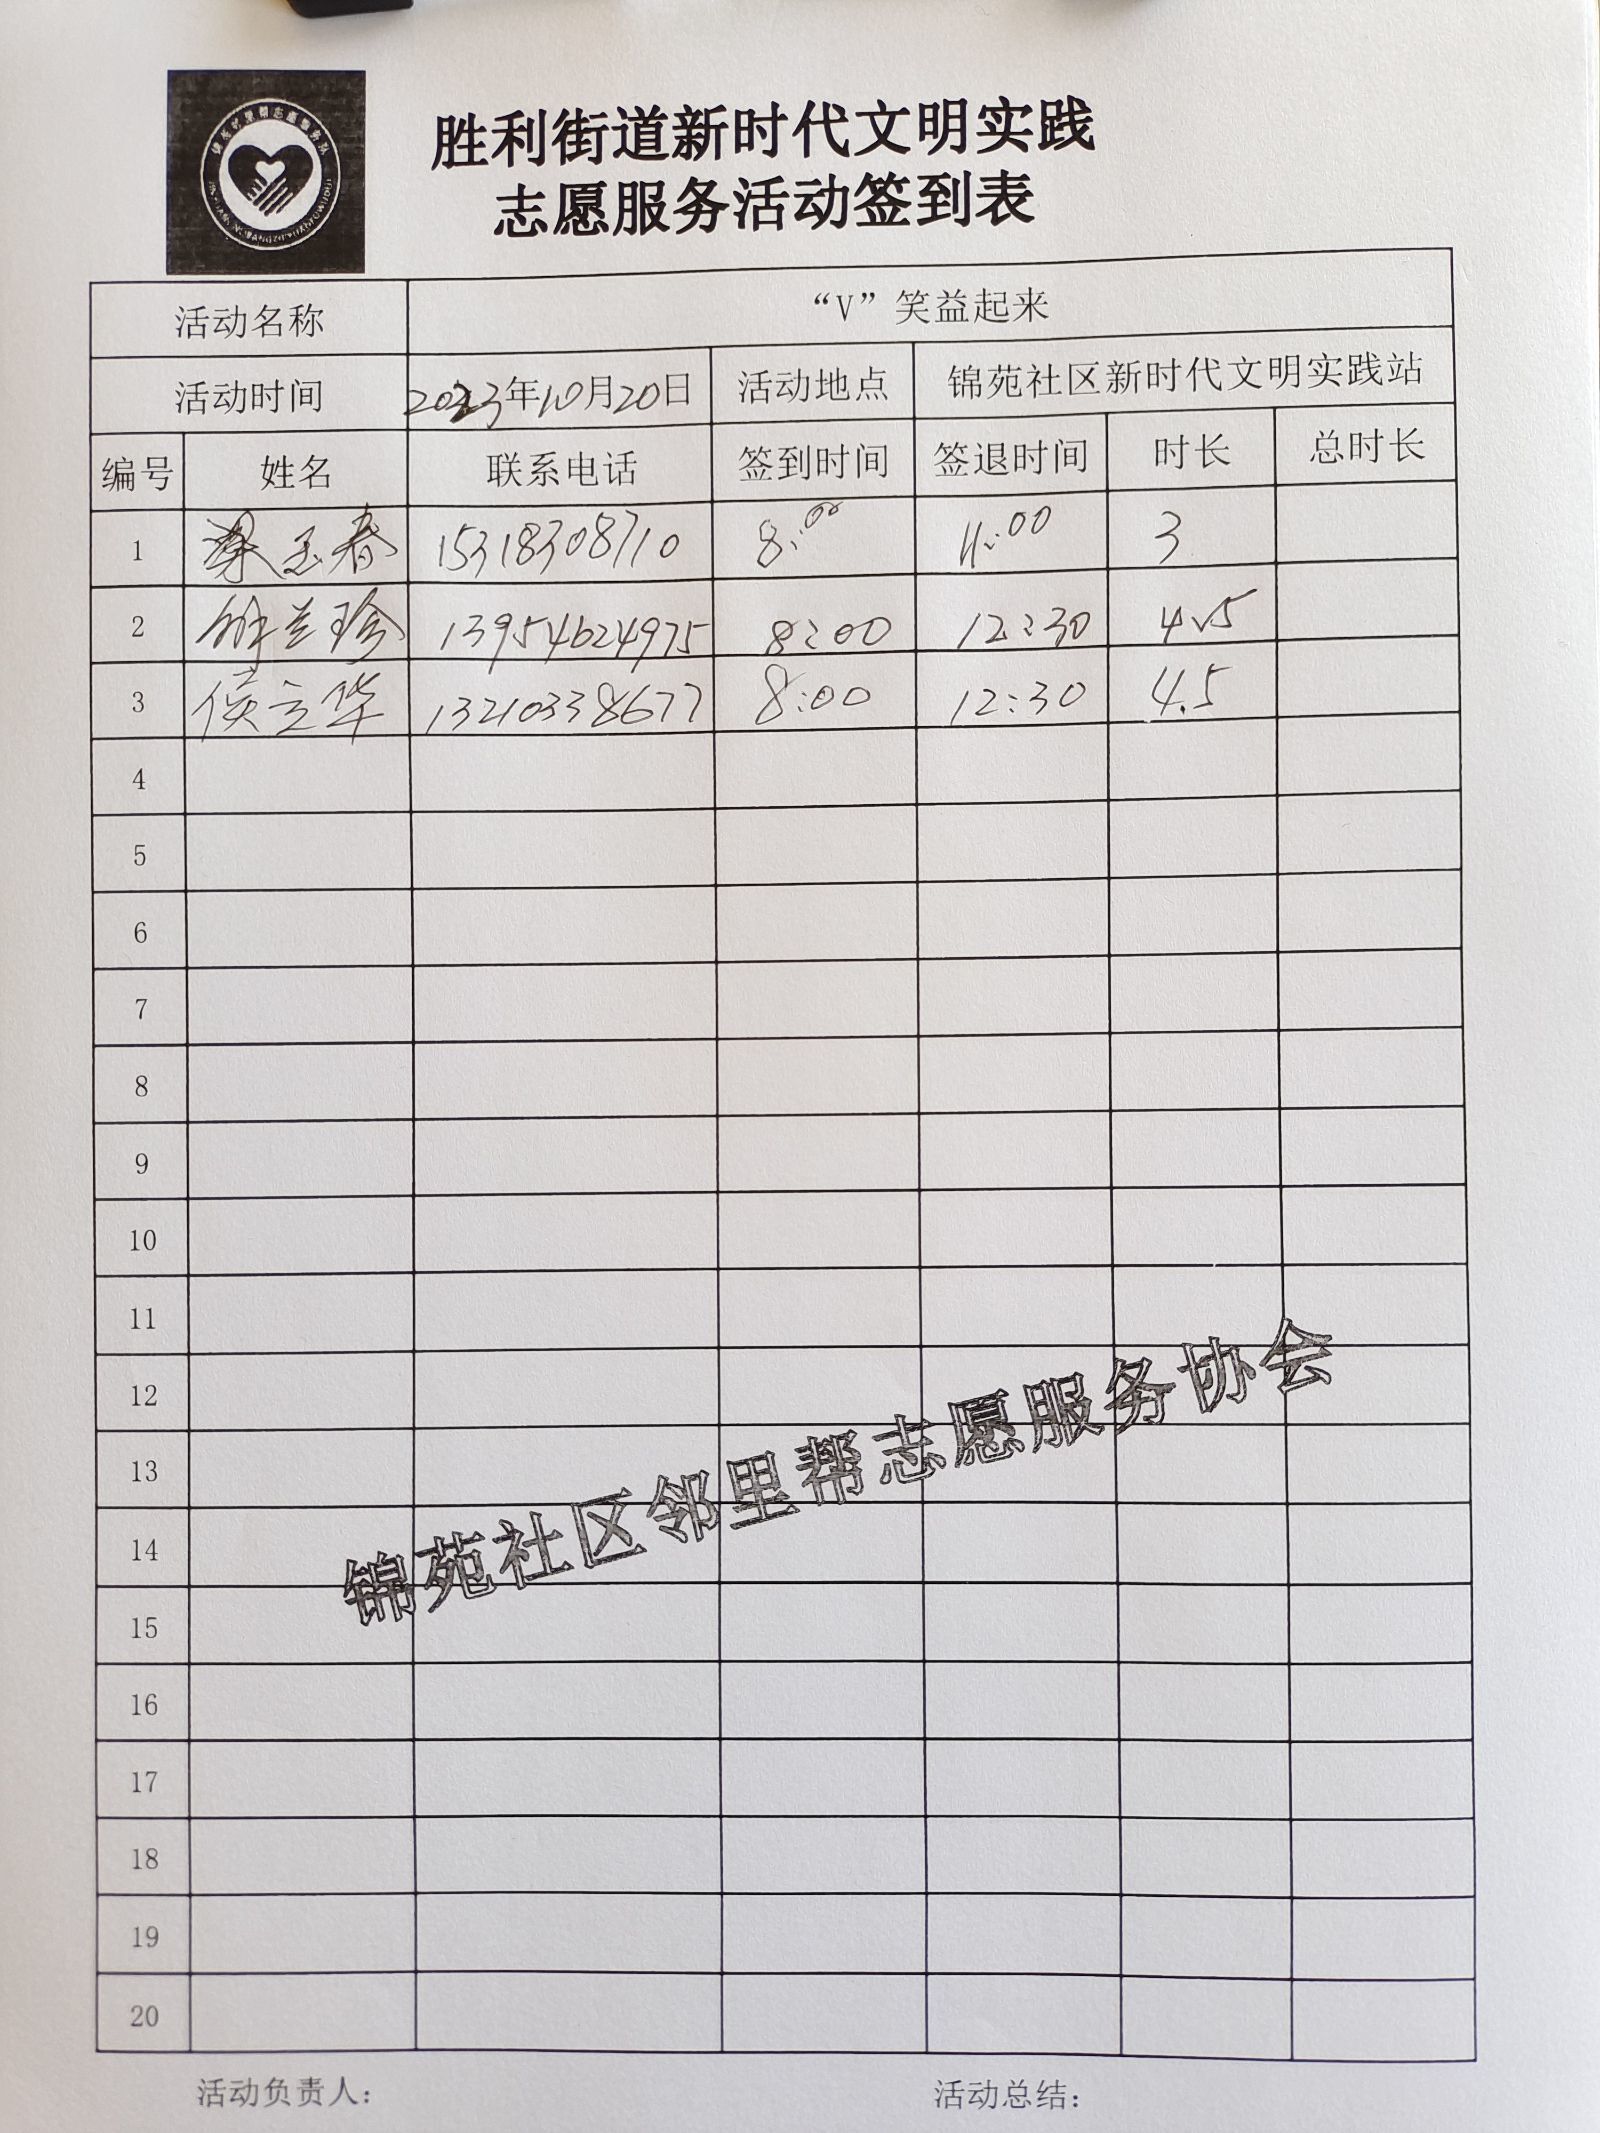 胜利街道新时代文明实践
志愿服务活动签到表
活动名称 “V”笑益起来
活动时间 2023年10月20日 活动地点 锦苑社区新时代文明实践站
编号 姓名 联系电话 签到时间 签退时间 时长 总时长
1 梁玉春 15318308710 8:00 11:00 3
2 兰珍 13954624975 8:00 12:30 4.5
3 侯立华 13210338677 8:00 12:30 4.5
4
5
6
7
8
9
10
11
12
13
14
15
16
17
18
19
20
锦苑社区邻里帮志愿服务协会
活动负责人: 活动总结: